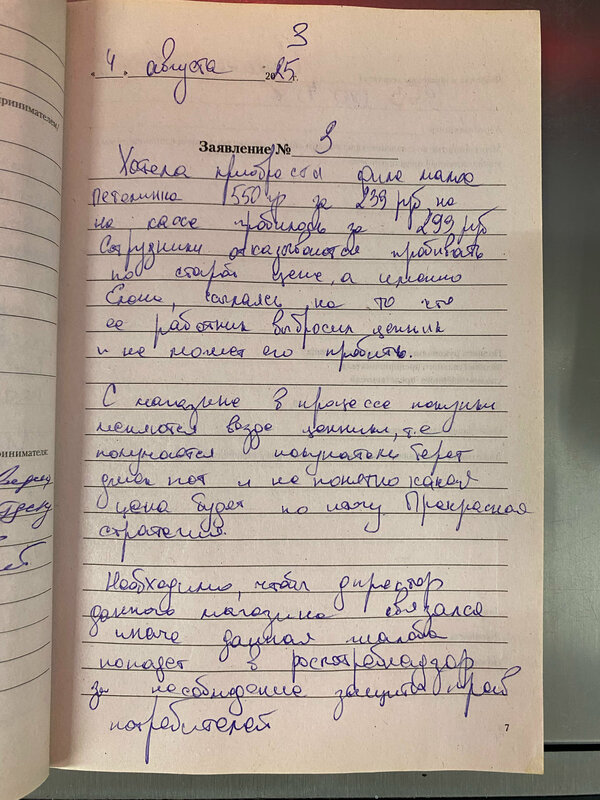 3
« 4 . августа 2025 г.
Заявление № 3
Хотела приобрести филе мало
Петелинка 550 гр за 239 руб, но
на кассе пробилось за 299 руб
Сотрудники отказываются пробивать
по старой цене, а именно
Елена, ссылаясь на то что
ее работник выбросил ценник
и не может его пробить.
С магазине в процессе покупки
меняются везде ценники, т.е
получается покупатель берет
и не понятно какая
цена будет по Прекрасная
стратегия.
Необходимо, чтобы директор
данного магазина связался
иначе данная жалоба
попадет в роспотребнадзор
за несоблюдение защиты прав
потребителей
7
ринимателем)
ринимателя: